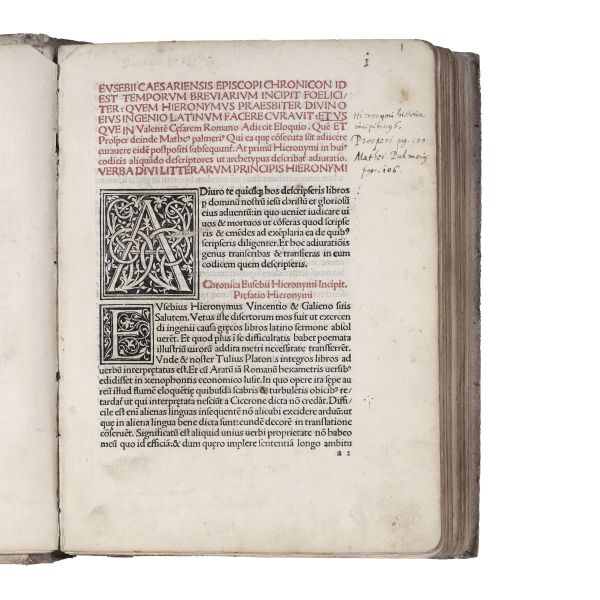 1
I
EVSEBII CAESARIENSIS EPISCOPI CHRONICON ID
EST TEMPORVM BREVIARIVM INCIPIT FOELICI/
TER: QVEM HIERONYMVS PRAESBITER DIVINO
EIVS INGENIO LATINVM FACERE CVRAVIT: ET VS
QVE IN Valentē Cęsarem Romano Adiecit Eloquio. Quē ET
Prosper deinde Matheꝰ palmeriꝰ Qui ea quę cōsecuta sūt adiicere
curauere eidē postpositi subsequunt̄. At primū Hieronymi in hui⁹
codicis aliquādo descriptores ut archetypus describat̄ adiuratio.
VERBA DIVI LITTERARVM PRINCIPIS HIERONYMI
Hieronymi historia
Prosperi pag. 100
pag. 106.
ADiuro te quicūqꝫ hos descripseris libros
ꝑ dominū nostrū iesū christū et gloriosū
eius aduentū: in quo ueniet iudicare ui
uos & mortuos ut cōferas quod scripse
ris & emēdes ad exēplaria ea de quibꝰ
scripseris diligenter. Et hoc adiuratiōis
genus transcribas & transferas in eum
codicem quem descripseris.
Chronica Eusebii Hieronymi Incipit.
Prefatio Hieronymi
EVsebius Hieronymus Vincentio & Galieno suis
Salutem. Vetus iste disertorum mos fuit ut exercen
di ingenii causa gręcos libros latino sermone absol
uerēt. Et quod plus ī se difficultatis habet poemata
illustriū uirorū addita metri necessitate transferrēt.
Vnde & noster Tulius Platonis integros libros ad
uerbū interpretatus est. Et cū Aratū iā Romanū hexametris uersibꝰ
edidisset in xenophontis economico lusit. In quo opere ita sępe au
reū illud flumē eloquētię quibusdā scabris & turbuletis obicibꝰ re/
tardat̄ ut qui interpretata nesciūt a Cicerone dicta nō credāt. Diffi/
cile est eni alienas linguas insequentē nō alicubi excidere arduū: ut
quę in aliena lingua bene dicta sunt: eundē decorē in translatione
cōseruēt. Significatū est aliquid unius uerbi proprietate nō habeo
meū quo id efficiā: & dum quęro implere sententiā longo ambitu
a 2